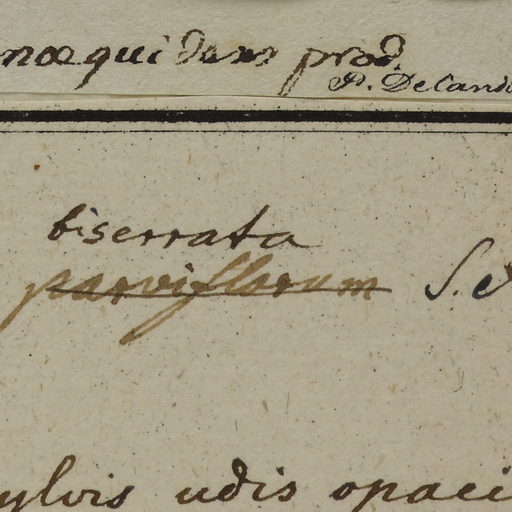 næquidens prod.
P. DeCand
biserrata
parviflorum S. et
ylvis udis opaci